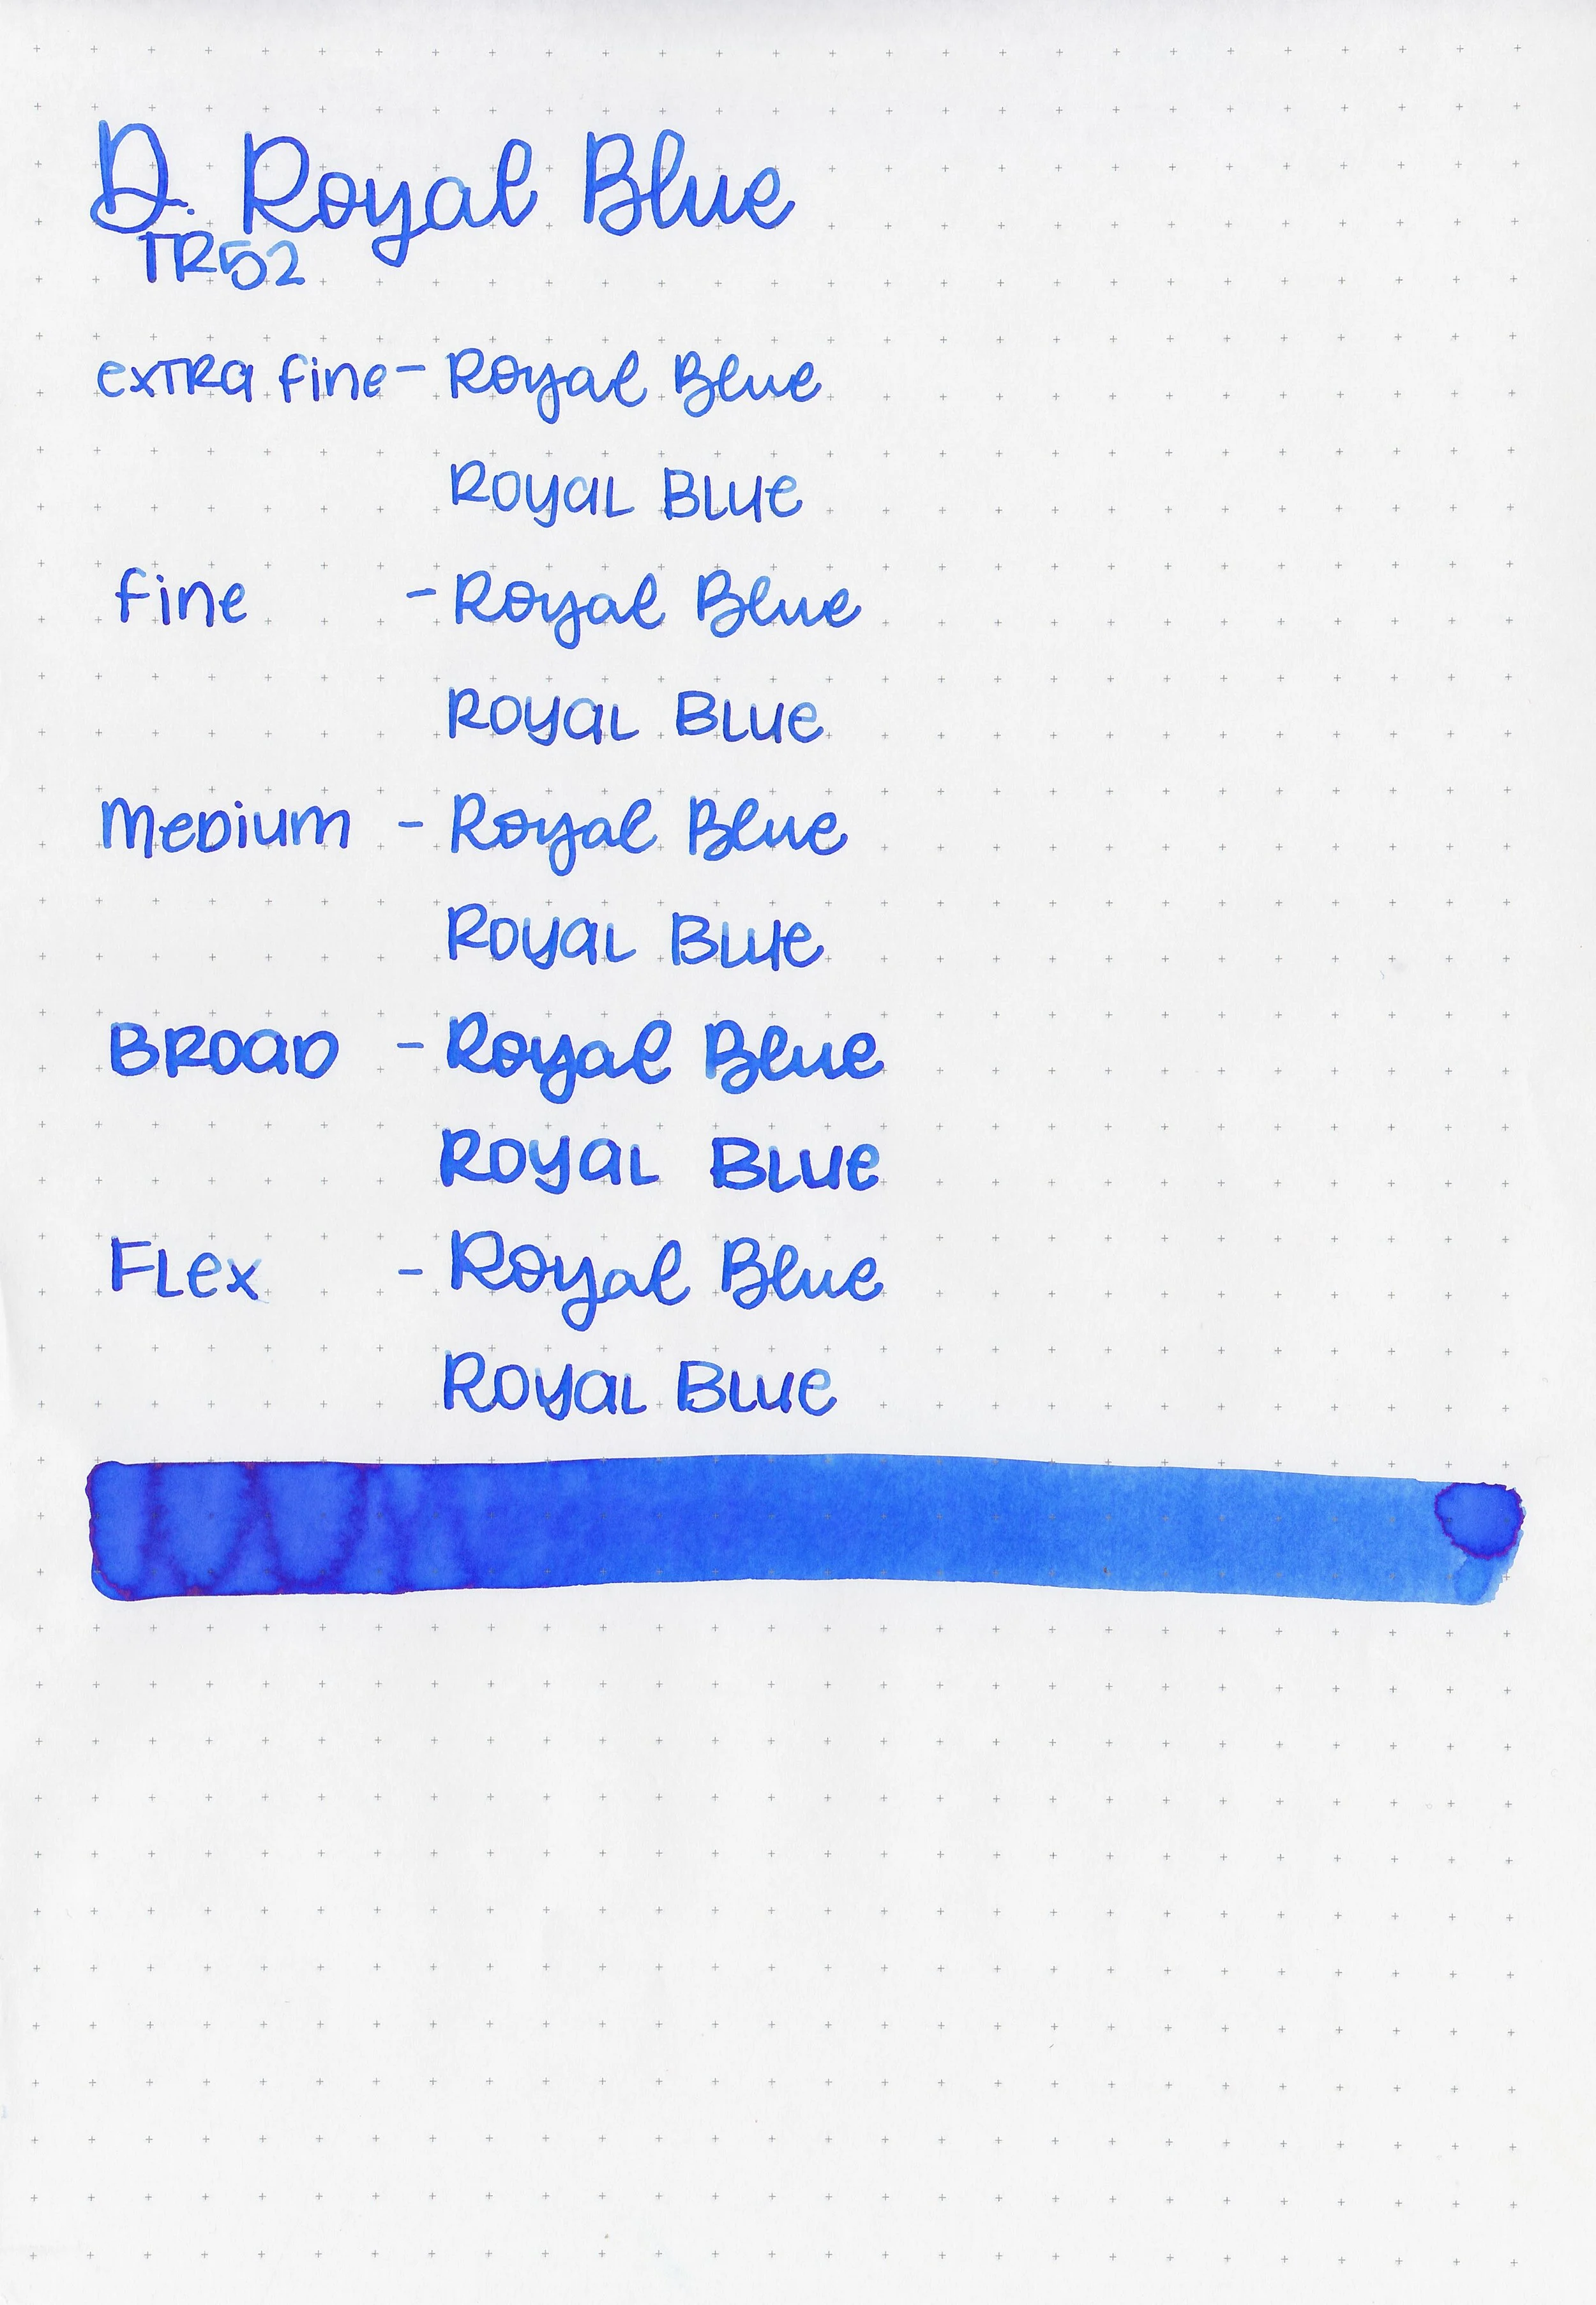 D. Royal Blue
TR52
exTRa fine - Royal Blue
Royal Blue
fine - Royal Blue
Royal Blue
Medium - Royal Blue
Royal Blue
Broad - Royal Blue
Royal Blue
Flex - Royal Blue
Royal Blue